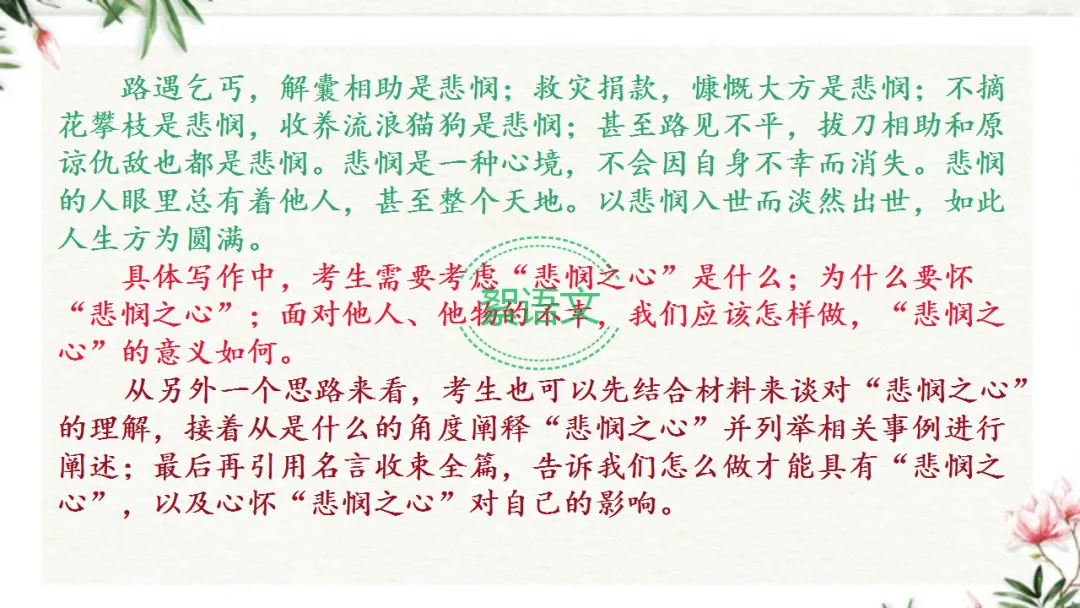 路遇乞丐，解囊相助是悲悯；救灾捐款，慷慨大方是悲悯；不摘
花攀枝是悲悯，收养流浪猫狗是悲悯；甚至路见不平，拔刀相助和原
谅仇敌也都是悲悯。悲悯是一种心境，不会因自身不幸而消失。悲悯
的人眼里总有着他人，甚至整个天地。以悲悯入世而淡然出世，如此
人生方为圆满。
具体写作中，考生需要考虑“悲悯之心”是什么；为什么要怀
“悲悯之心”；面对他人、他物的不幸，我们应该怎样做，“悲悯之
心”的意义如何。
絮语文
从另外一个思路来看，考生也可以先结合材料来谈对“悲悯之心”
的理解，接着从是什么的角度阐释“悲悯之心”并列举相关事例进行
阐述；最后再引用名言收束全篇，告诉我们怎么做才能具有“悲悯之
心”，以及心怀“悲悯之心”对自己的影响。